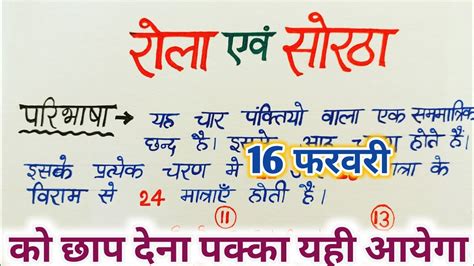 रोला एवं सोरठा
परिभाषा → यह चार पंक्तियो वाला एक सममात्रिक
छन्द है। इसके आठ होते है।
इसके प्रत्येक चरण मे के
16 फरवरी
विराम से 24 मात्राएँ होती है।
11 13
को छाप देना पक्का यही आयेगा